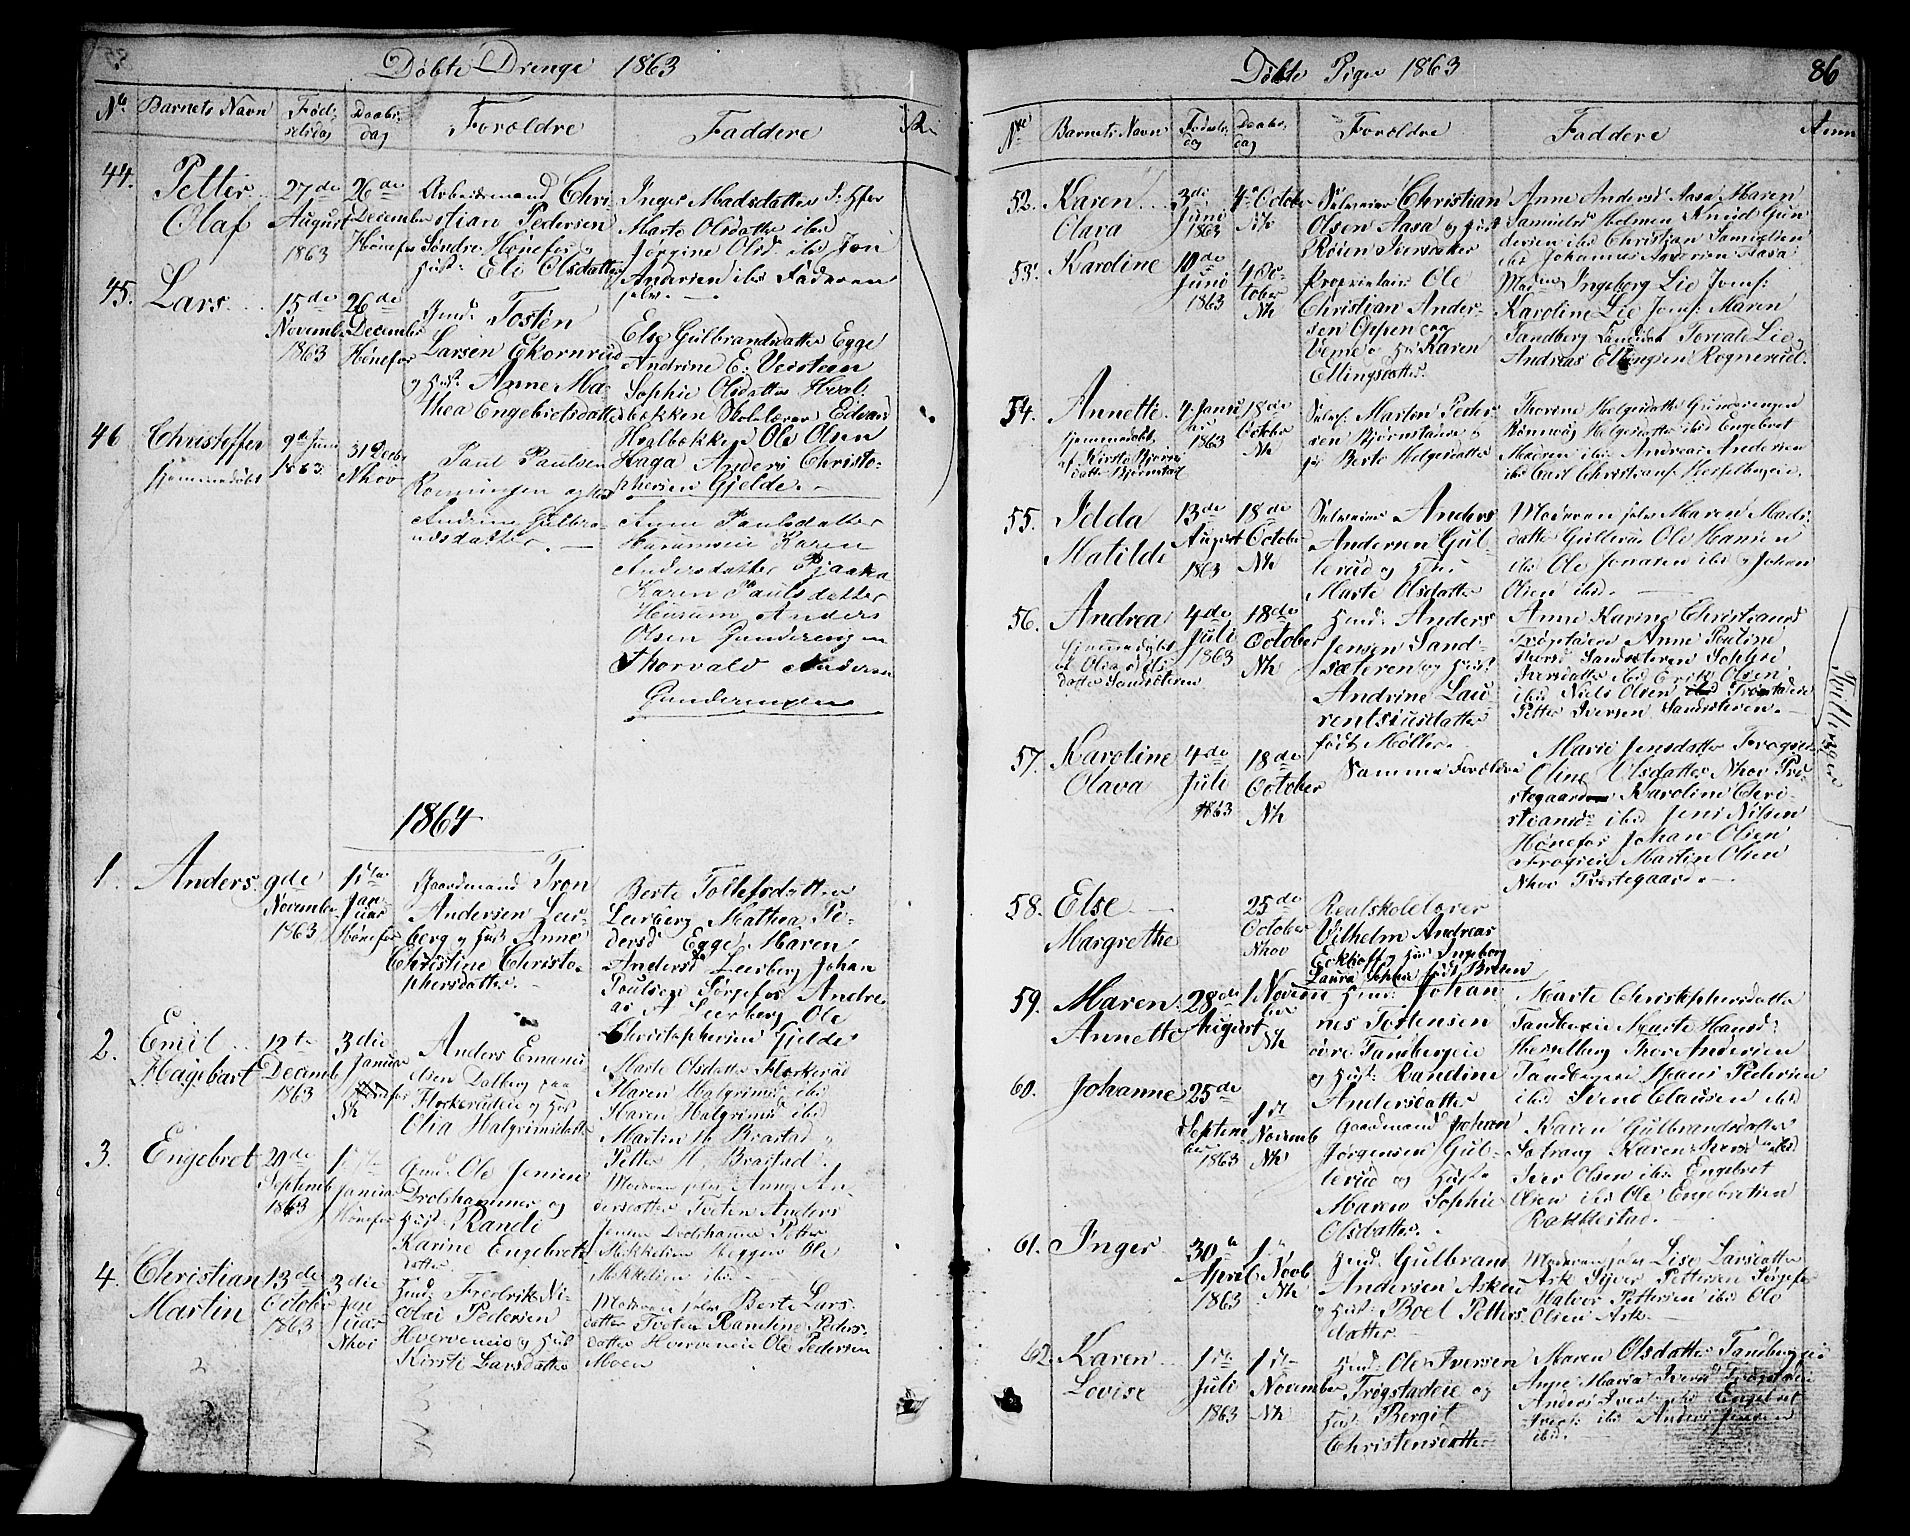 Døbte Drenge 1863
No Barnets Navn Fødselsdag Daabsdag Forældre Faddere
44. Petter Olaf
27de August 1863
26de December Hønefos
Arbeidsmand Chri
stian Pedersen
Søndre Hønefos og
Hust: Eli Olsdatter
Inger Madsdatter
Marte Olsdatter ibid
Jørgine Olsd. ibid Jon
Andersen ibid Faderen
selv.
45. Lars
15de November 1863
26de December Hønefos
Huusmd: Tosten
Larsen Ekornrud
og Hust: Anne Ma
thea Engebretsdatter
Else Gulbrandsdatter Egge
Andrine E. Veisteen
Sophie Olsdatter Hval
bækken Skolelærer Edvard
Hvalbækken Ole Olsen
Haga Anders Christo
phersen Gjelde.
46 Christoffer
hjemmedøbt
9de Juni 1863
31 Decbr Nhov
Paul Paulsen
Ronningen og Hust
Andrine Gulbra
ndsdatter.
Anne Paulsdatter
Karen
Andersdatter Pjaaka
Karen Paulsdatter
Husum Anders
Olsen Gunderengen
Thorvald Andersen
Gunderengen
1864
1. Anders
9de November 1863
1ste Januar Hønefos
Gaardmand Tron
Andersen Leer
berg og Hust: Anne
Christine Christo
phersdatter.
Berte Tollefsdatter
Leerberg Mathea Pe
dersd Egge Maren
Andersd Leerberg Johan
Poulsen Sørgefos Andre
as A Leerberg Ole
Christophersen Gjelde
2. Emil Hagebart
12te Decemb 1863
3die Januar Nh
Anders Emanu
elsen Dalberg paa
Flaskerudeie og Hust
Olia Halgrimsdatter
Marte Olsdatter Flaskerud
Maren Halgrimsd ibid
Karen Halgrimsd ibid
Martin H. Brastad og
Petter H. Brastad.
3. Engebret
20de Septemb 1863
1ste Januar Hønefos
Gmd: Ole Jensen
Drolshammer og
Hust: Randi
Karine Engebrets
datter
Moderen selv Anne An
dersdatter Tveten Anders
Jensen Drolshamer Petter
Mikkelsen Heggen Ole
Mikkelsen ibid
4. Christian Martin
13de October 1863
3die Januar Nhov
Huusmd: Fredrik Ni
colai Pedersen
Hverveneie og Hust
Kirsti Larsdatter
Moderen selv Berte Lars
datter Tveten Randine Peders
datter Hverveneie Ole Pedersen
Moen
Døbte Piger 1863 86
No Barnets Navn Fødselsdag Daabsdag Forældre Faddere Anm
52. Karen Olava
3die Juni 1863
4de October Nh
Selveier Christian
Olsen Aasa og Hust
Roien Iversdatter
Anne Andersd Aasa Maren
Samuelsd Holmen Knud Gun
dersen ibid Christian Samuelsen
ibid Johannes Andersen Aasa
53. Karoline
10de Juni 1863
4 October Nh
Proprietair Ole
Christian Ander
sen Oppen og
Veme og Hst Karen
Ellingsdatter
Madam Ingeborg Lie Jomf:
Karoline Lie Jomf: Maren
Sandberg Torvald Lie
Andreas Ellingsen Rognerud
54. Annette.
hjemmedøbt
af Kirsti Bjørns
datter Bjørnstad
4 Januar 1863
18de October Nh
Selvei: Morten Peder
sen Bjørnstad og
H. Berte Helgesdatter
Thorine Helgesdatter Gunderengen
Rønnaug Helgesdatter ibid Engebret
Madsen ibid Andreas Andersen
ibid Carl Christians: Hesselbergeie
55. Idda Matilde
13de August 1863
18de October Nh
Selveier Anders
Andersen Gul
lerud og Hust
Marte Olsdatter
Moderen selv Maren Mads
datter Gullerud Ole Hansen
ibid Ole Jonasen ibid og Johan
Olsen ibid.
56. Andrea
hjemmedøbt
af Olea Nils
datter Sandsæteren
4de Juli 1863
18de October Nh
Huusmd: Anders
Jensen Sand
sæteren og Hust
Andrine Lau
rentsiusdatter
født Møller.
Anne Karine Christiansd
Trøgstadeie Anne Pouline
Ihersd Sandsæteren Sophie
Iversdatter ibid Erik Olsen
ibid Niels Olsen Trøgstadeie
Petter Iversen Sandsæteren.
57. Karoline Olava
4de Juli 1863
18de October Nh
Samme Forældre
Marie Jensdatter Frogsei
Oline Olsdatter Nhov Præ
stegaard Karoline Chri
stiansd ibid Jens Nilsen
Hønefos Johan Olsen
Frogseie Martin Olsen
Nhov Præstegaard.
Tvillinger
58. Else Margrethe
25de October Nhov
Realskolelærer
Vilhelm Andreas
Eckhoff og Hust Ingeborg
Laura Sophie født Breien
59. Maren Annette
28de August
1 November Nh
Huusmd: Johan
nes Tostensen
øvre Tandbergeie
og Hust: Randine
Andersdatter
Marte Christophersdatter
Tandbergeie Marte Hansd:
Hesselberg Thor Andersen
Tandbergeie Mons Pedersen
ibid Svend Clausen ibid
60. Johanne
25de September 1863
1ste Novemb Nh
Gaardmand Johan
Jørgensen Gul
lerud og Hust
Maren Sophie
Olsdatter.
Karen Gulbrandsdatter
Sætrang Karen Iversd ibid
Iver Olsen ibid Engebret
Olsen ibid Ole Engebretsen
Rakkestad.
61. Inger
30te April 1863
1ste Novb Nh
Huusmd: Gulbran
Andersen Askeie
og Hust: Boel Petters
datter.
Moderen selv Lise Larsdatter
Ask Siver Pettersen Sørgefos
Halvor Pettersen ibid Ole
Olsen Ask.
62. Karen Lovise
1ste Juli 1863
1ste November Nh
Huusmd: Ole Iversen
Trøgstadeie og
Hust: Bergit
Christensdatter
Maren Olsdatter Tandbergeie
Anne Maria Iversd Trøgstadeie
Anders Iversen ibid Engebret
Iversen ibid Anders Jensen
ibid.